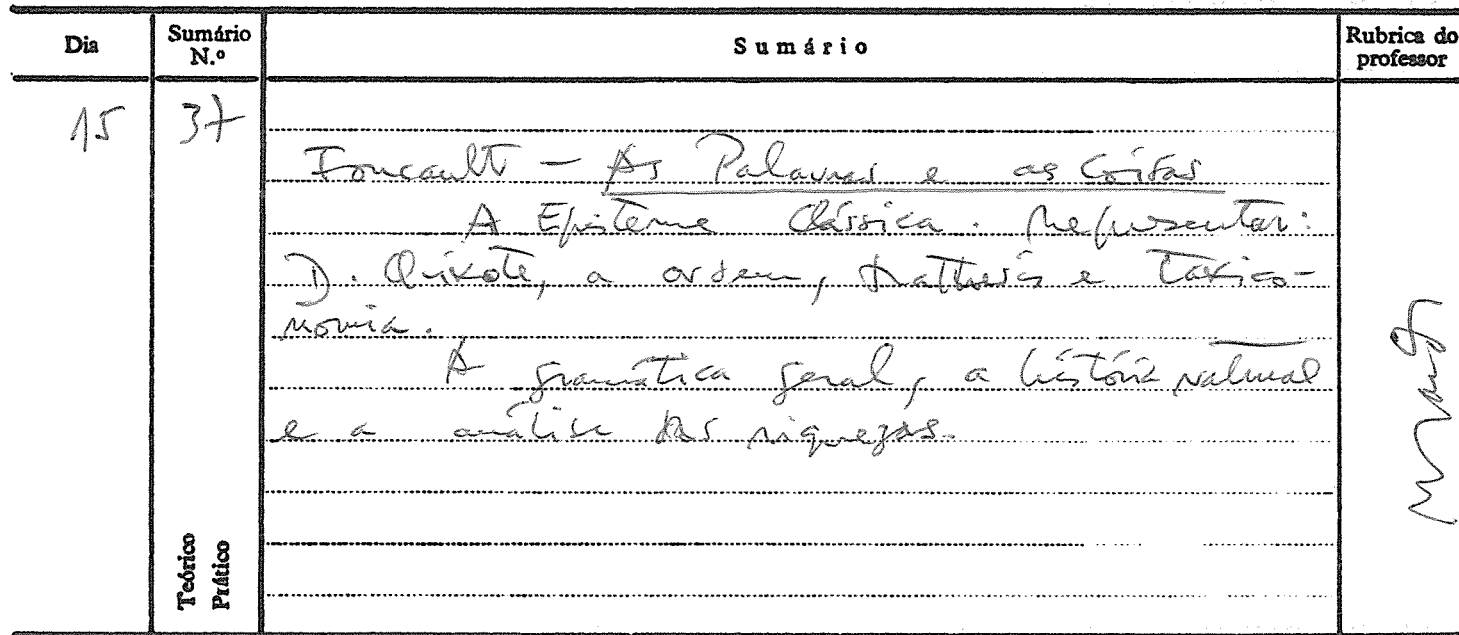 Dia
Sumário N.º
Sumário
Rubrica do professor
15
37
Foucault - As Palavras e as Coisas
A Episteme Clássica. Representar:
D. Quixote, a ordem, Mathesis e Taxico-
nomia.
A gramática geral, a história natural
e a análise das riquezas.
Teórico
Prático